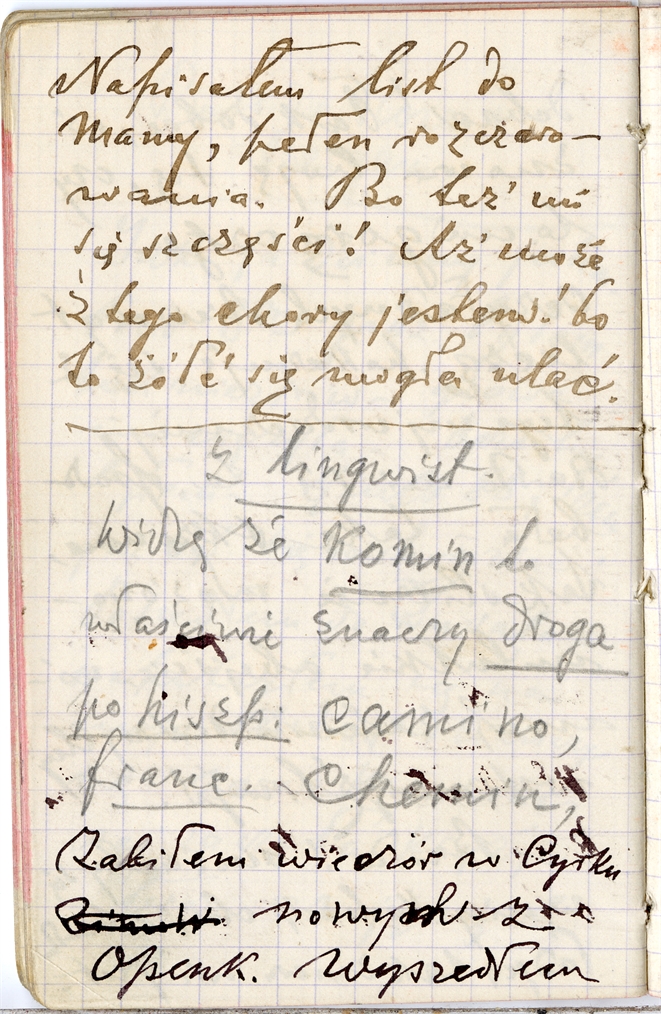 Napisałem list do
Mamy, pełen rozczaro-
wania. Bo też mi
się szczęści! Aż może
z tego chory jestem! bo
to żółć się mogła ulać.
Z lingwist.
Widzę że Komin to
właściwie znaczy droga
po hiszp: camino,
franc. Chemin,
Zabiłem wieczór w Cyrku
nowych z
Openk. Wyszedłem